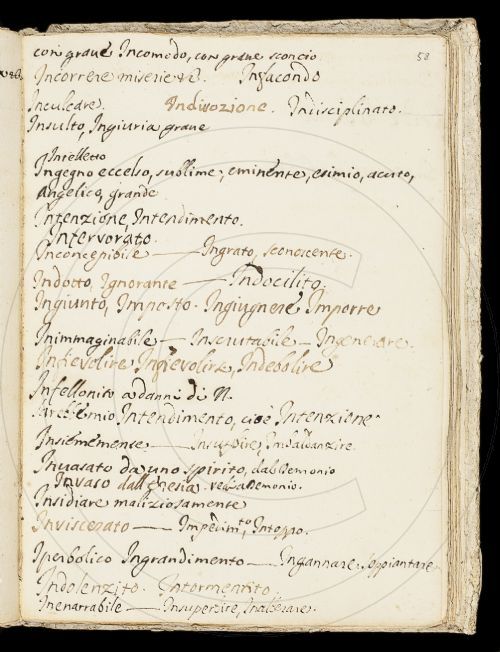 58
con graue Incomodo, con graue sconcio
Incorrere miserie &c. Infacondo
Inculcare. Indiuozione. Indisciplinato.
Insulto, Ingiuria graue
Intelletto
Ingegno eccelso, sublime, eminente, esimio, acuto,
Angelico, grande
Intenzione, Intendimento.
Intervorato.
Inconcepibile — Ingrato, sconoscente.
Indotto, Ignorante — Indocilito.
Ingiunto, Imposto. Ingiugnere Imporre
Inimmaginabile — Inscrutabile — Ingenerare.
Infievolire Infievolirsi, Indebolire
Infellonito a danni di N.
Sarebbe mio Intendimento, cioè Intenzione
Insiememente — Insuperbire, Imbaldanzire.
Inuasato da uno spirito, dal Demonio
Invaso dall'Eresia. Demonio.
Insidiare maliziosamente
Inviscerato — Impedimto, Intoppo.
Iperbolico Ingrandimento — Ingannare, soppiantare
Indolenzito. Intormentito.
Inenarrabile — Insuperire, Inalberare.